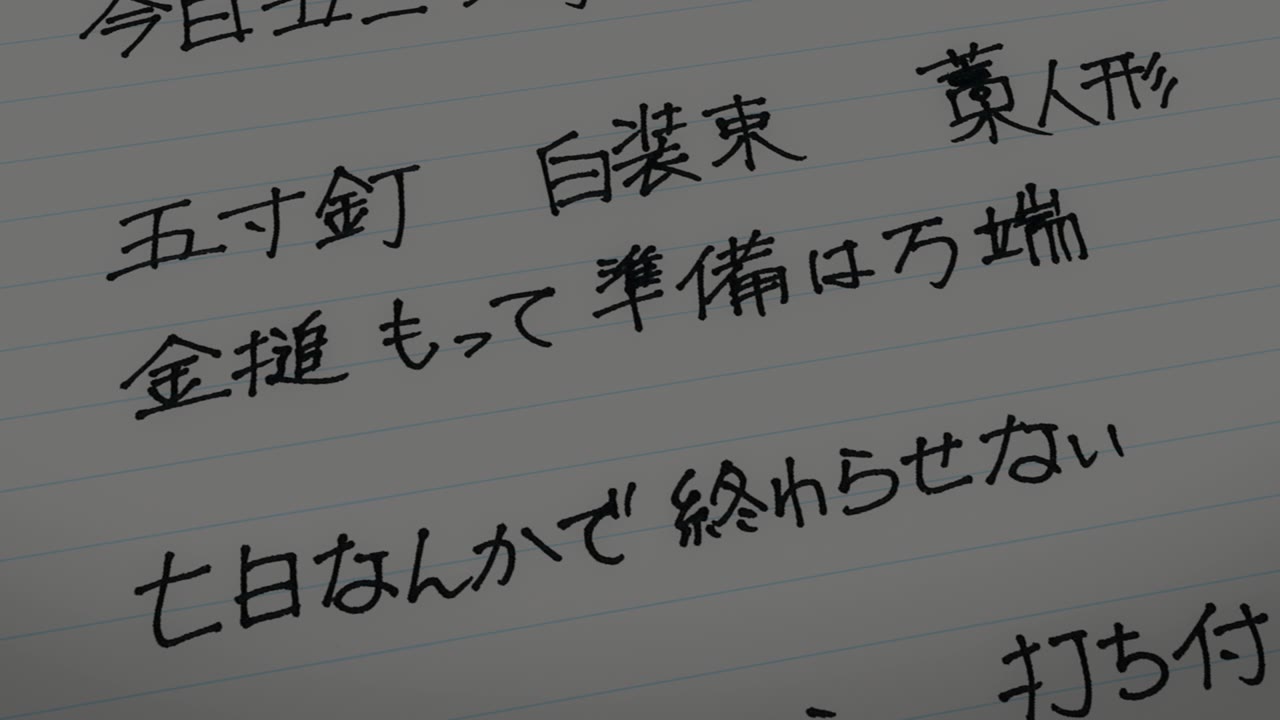 今日五
五寸釘　白装束　藁人形
金槌もって準備は万端
七日なんかで終わらせない
打ち付